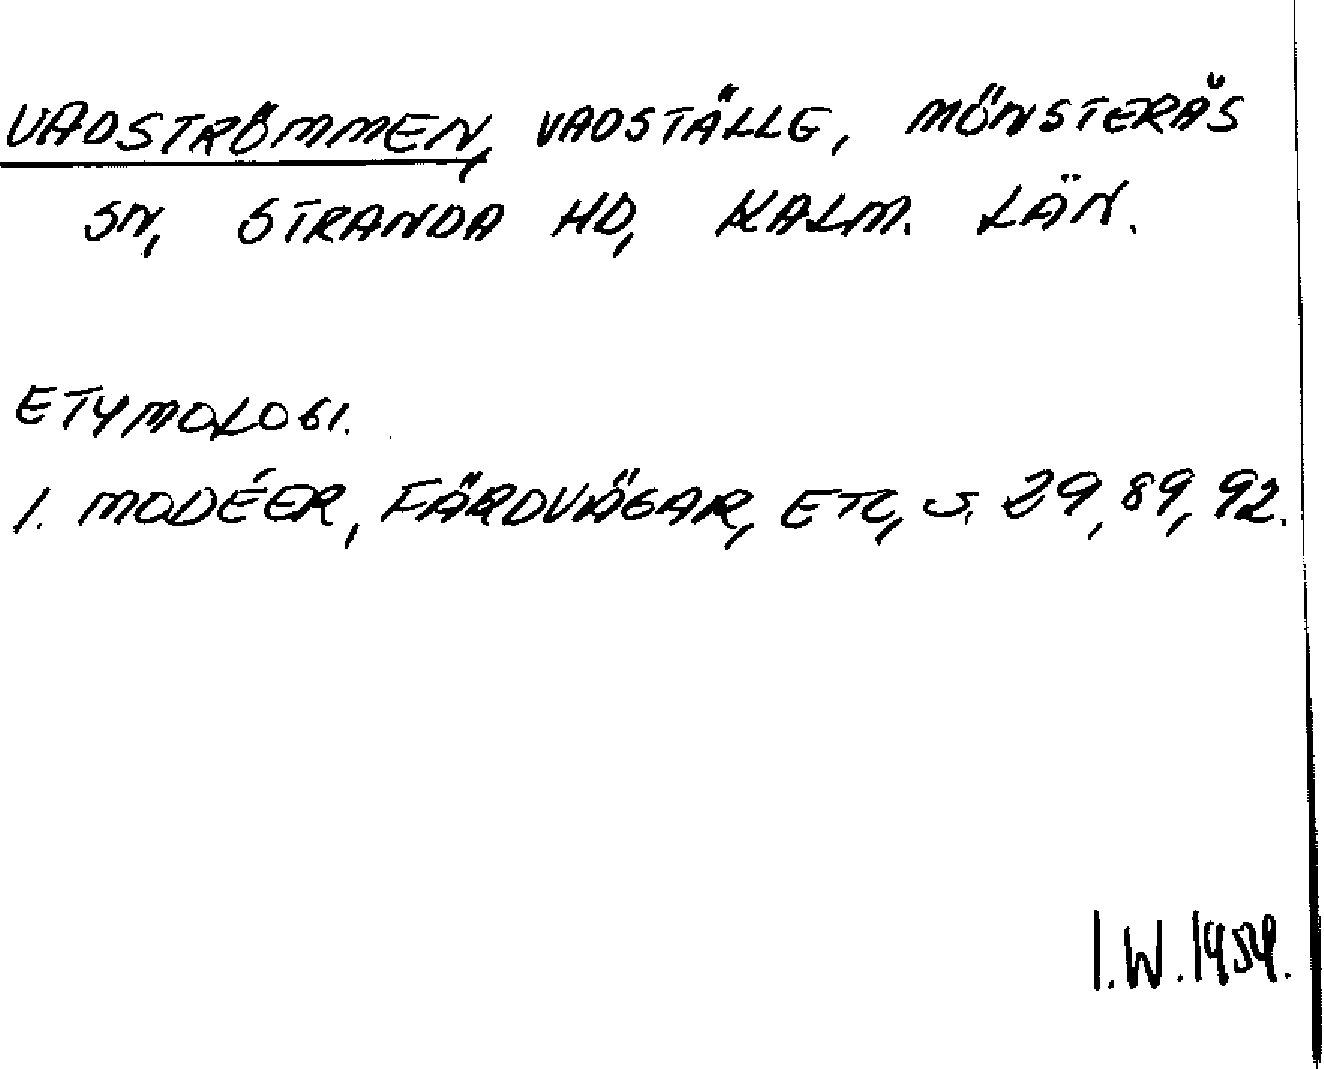 VADSTRÖMMEN, VADSTÄLLE, MÖNSTERÅS
SN, STRANDA HD, KALM. LÄN.
ETYMOLOGI.
1. MODÉER, FÄRDVÄGAR, ETC, S. 29, 89, 92.
I.W. 1959.